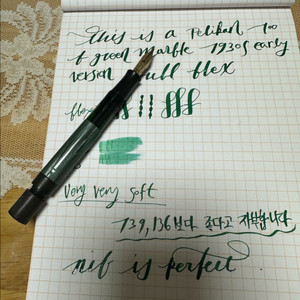 this is a Pelikan 100
green marble 1930s early
version full flex
flex fff
Very very soft
139, 136 보다 좋다고 자부합니다
nib is perfect.